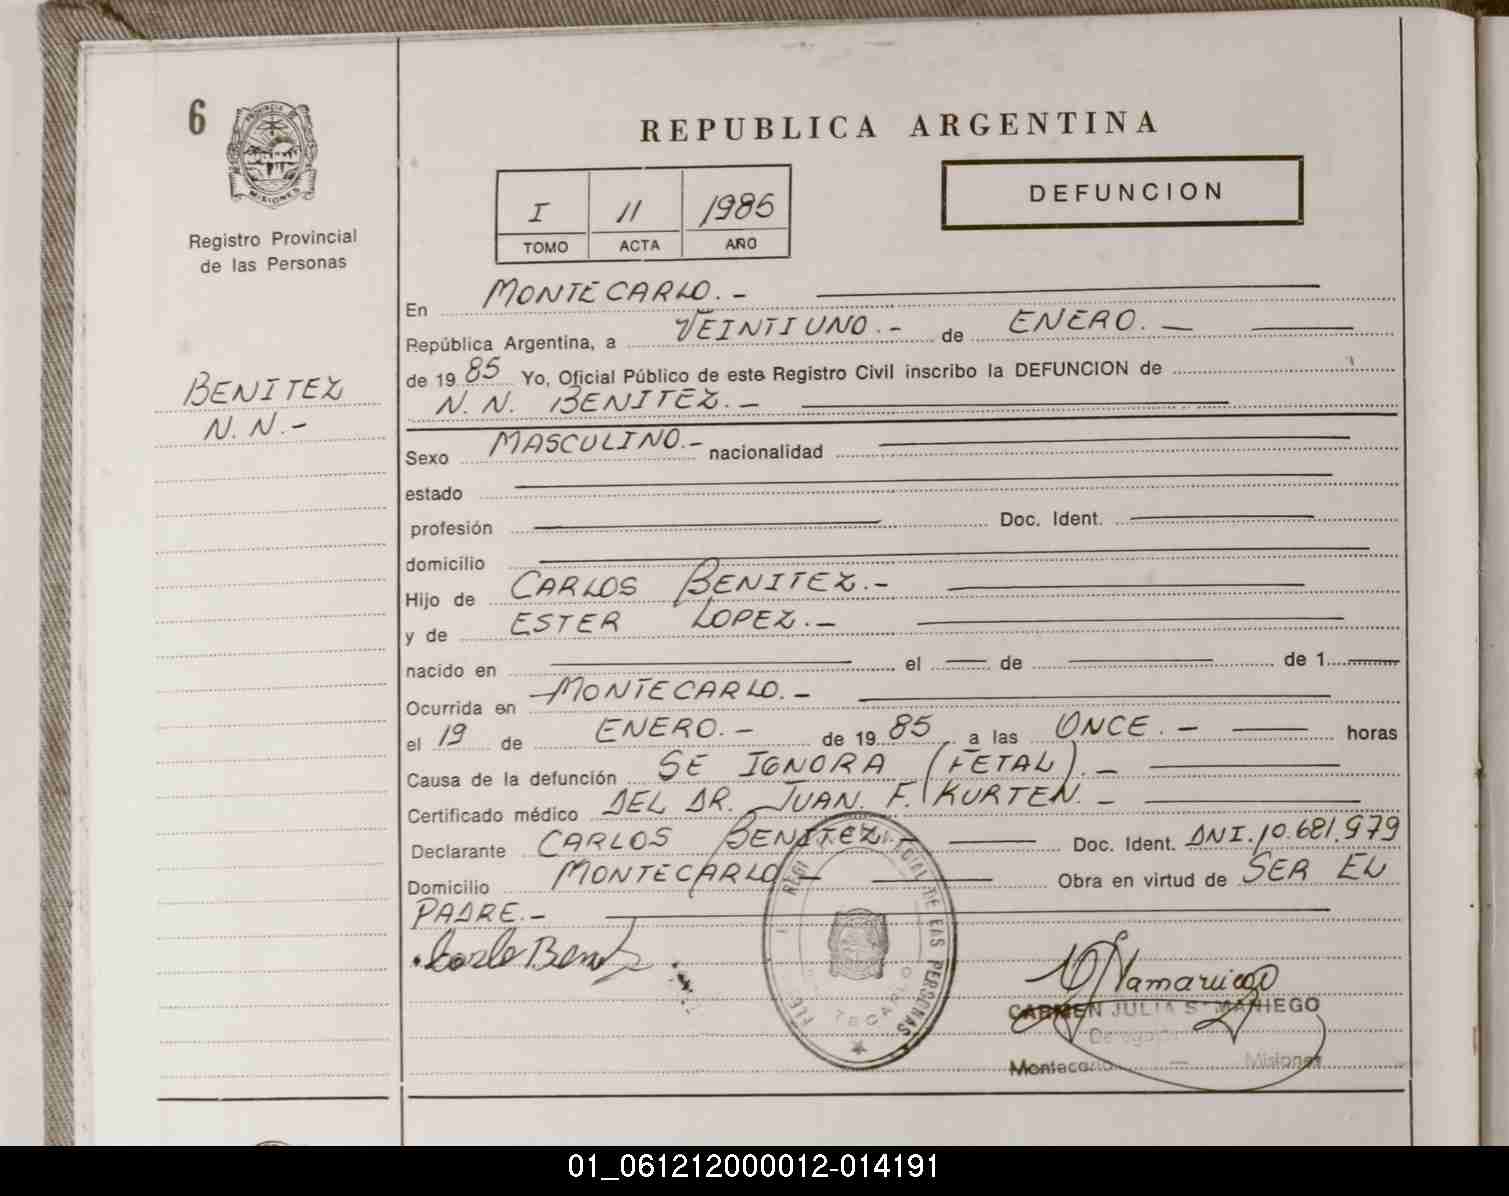 6
PROVINCIA DE
MISIONES
Registro Provincial
de las Personas
BENITEZ
N. N.-
REPUBLICA ARGENTINA
I 11 1985
TOMO ACTA AÑO
DEFUNCION
En MONTECARLO.-
República Argentina, a VEINTIUNO.- de ENERO.-
de 1985 Yo, Oficial Público de este Registro Civil inscribo la DEFUNCION de
N. N. BENITEZ.-
Sexo MASCULINO.- nacionalidad
estado
profesión Doc. Ident.
domicilio
Hijo de CARLOS BENITEZ.-
y de ESTER LOPEZ.-
nacido en el de de 1
Ocurrida en MONTECARLO.-
el 19 de ENERO.- de 1985 a las ONCE.- horas
Causa de la defunción SE IGNORA (FETAL).-
Certificado médico DEL DR. JUAN. F. KURTEN.-
Declarante CARLOS BENITEZ.- Doc. Ident. DNI.10.681.979
Domicilio MONTECARLO.- Obra en virtud de SER EL
PADRE.-
DE LAS PERSONAS
CARMEN JULIA SAMANIEGO
Montecarlo - Misiones
01_061212000012-014191